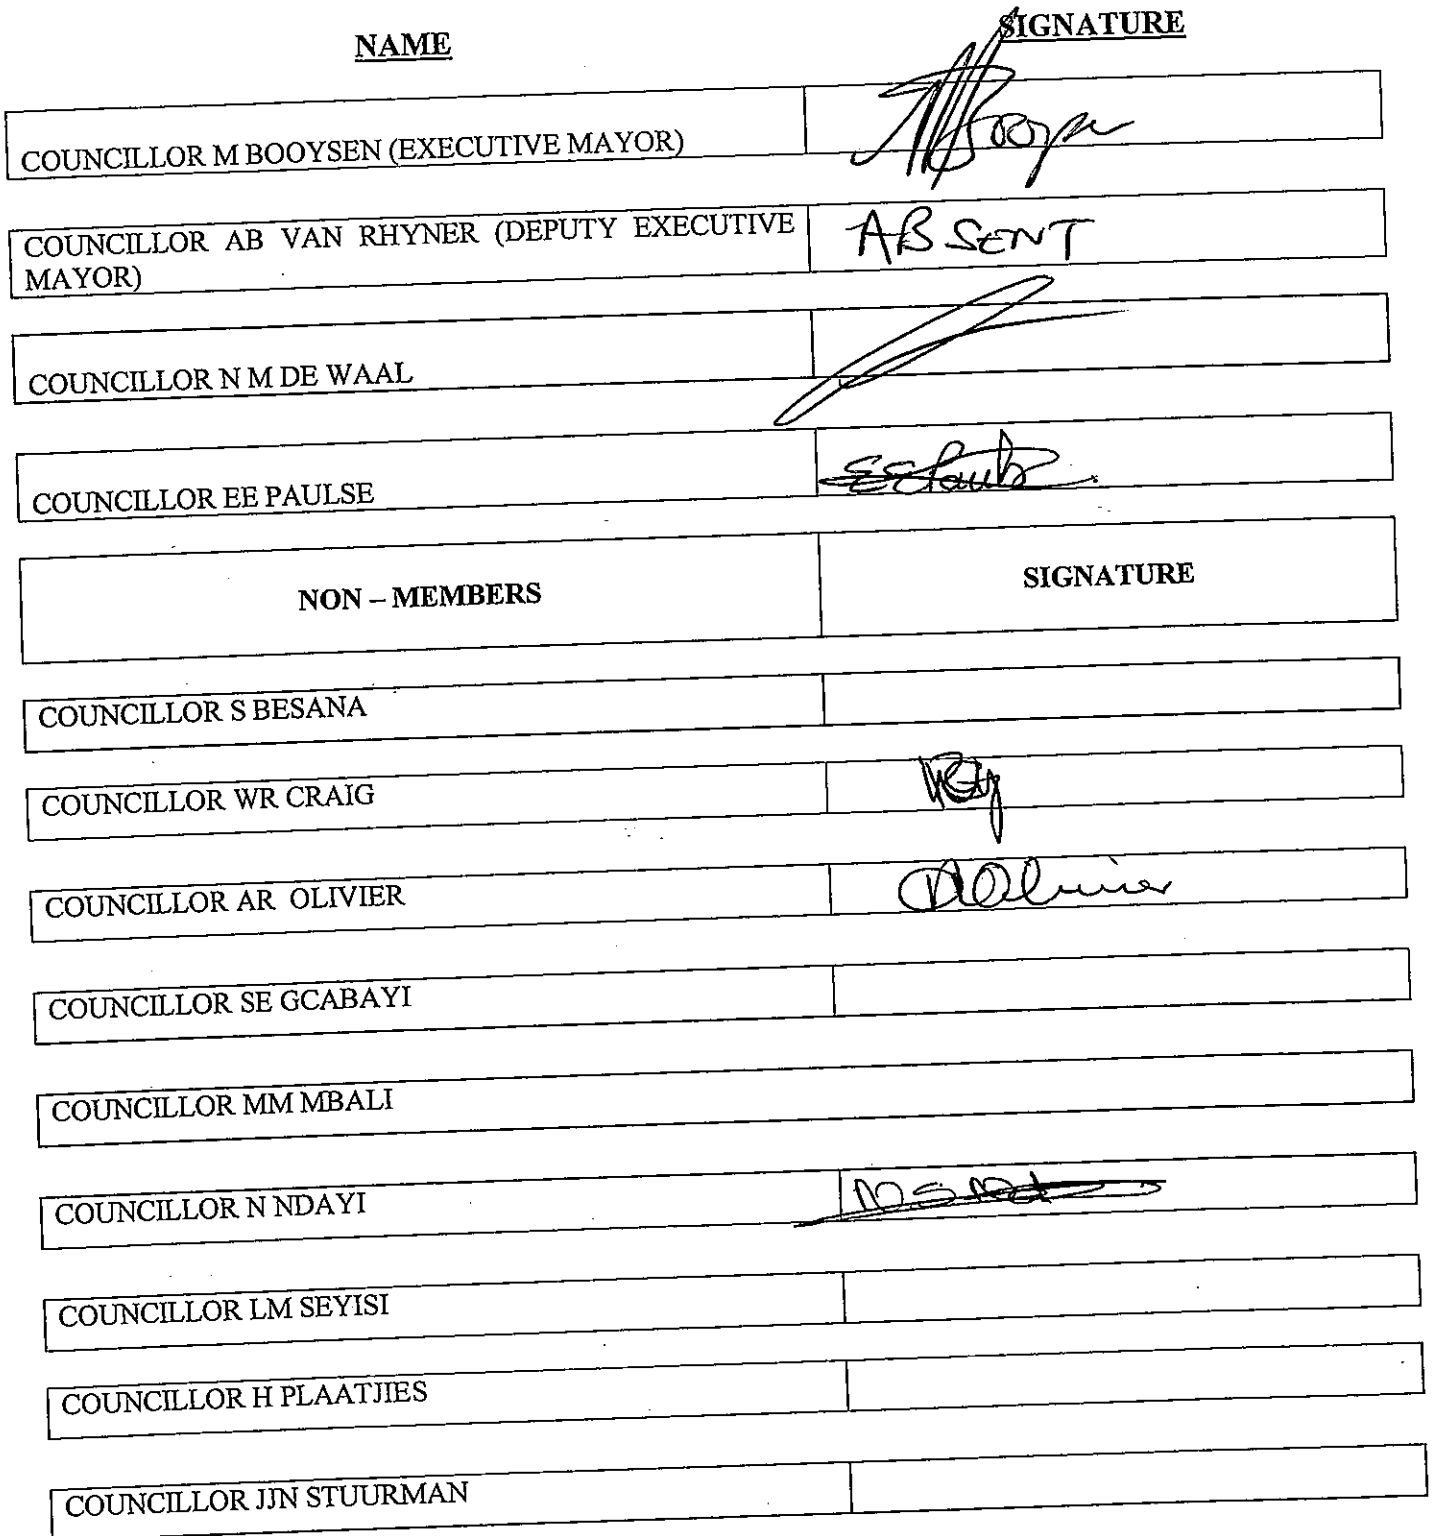 NAME SIGNATURE
COUNCILLOR M BOOYSEN (EXECUTIVE MAYOR)
COUNCILLOR AB VAN RHYNER (DEPUTY EXECUTIVE ABSENT
MAYOR)
COUNCILLOR N M DE WAAL
COUNCILLOR EE PAULSE
NON – MEMBERS SIGNATURE
COUNCILLOR S BESANA
COUNCILLOR WR CRAIG
COUNCILLOR AR OLIVIER
COUNCILLOR SE GCABAYI
COUNCILLOR MM MBALI
COUNCILLOR N NDAYI
COUNCILLOR LM SEYISI
COUNCILLOR H PLAATJIES
COUNCILLOR JJN STUURMAN